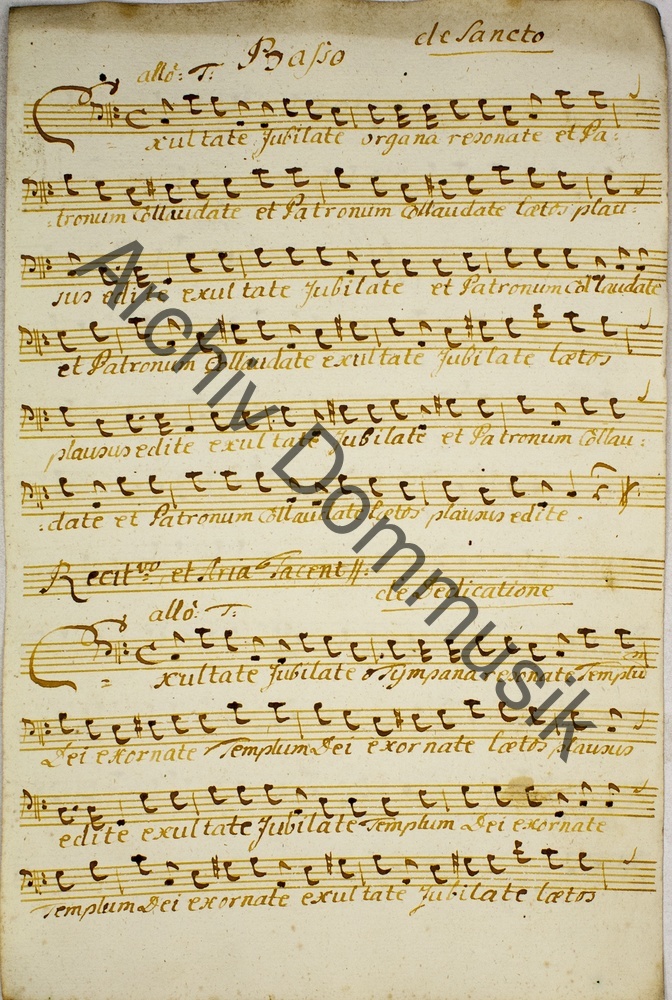 Basso
de Sancto
allo: T:
Exultate Jubilate organa resonate et Pa:
:tronum Collaudate et Patronum Collaudate lætos plau:
sus edite exultate Jubilate et Patronum Collaudate
et Patronum Collaudate exultate Jubilate lætos
plausus edite exultate Jubilate et Patronum Collau:
:date et Patronum Collaudate lætos plausus edite.
Recit:vo et Aria Tacent
de Dedicatione
allo: T:
Exultate Jubilate Tympana resonate Templum
Dei exornate Templum Dei exornate lætos plausus
edite exultate Jubilate Templum Dei exornate
Templum Dei exornate exultate Jubilate lætos
Archiv Dommusik